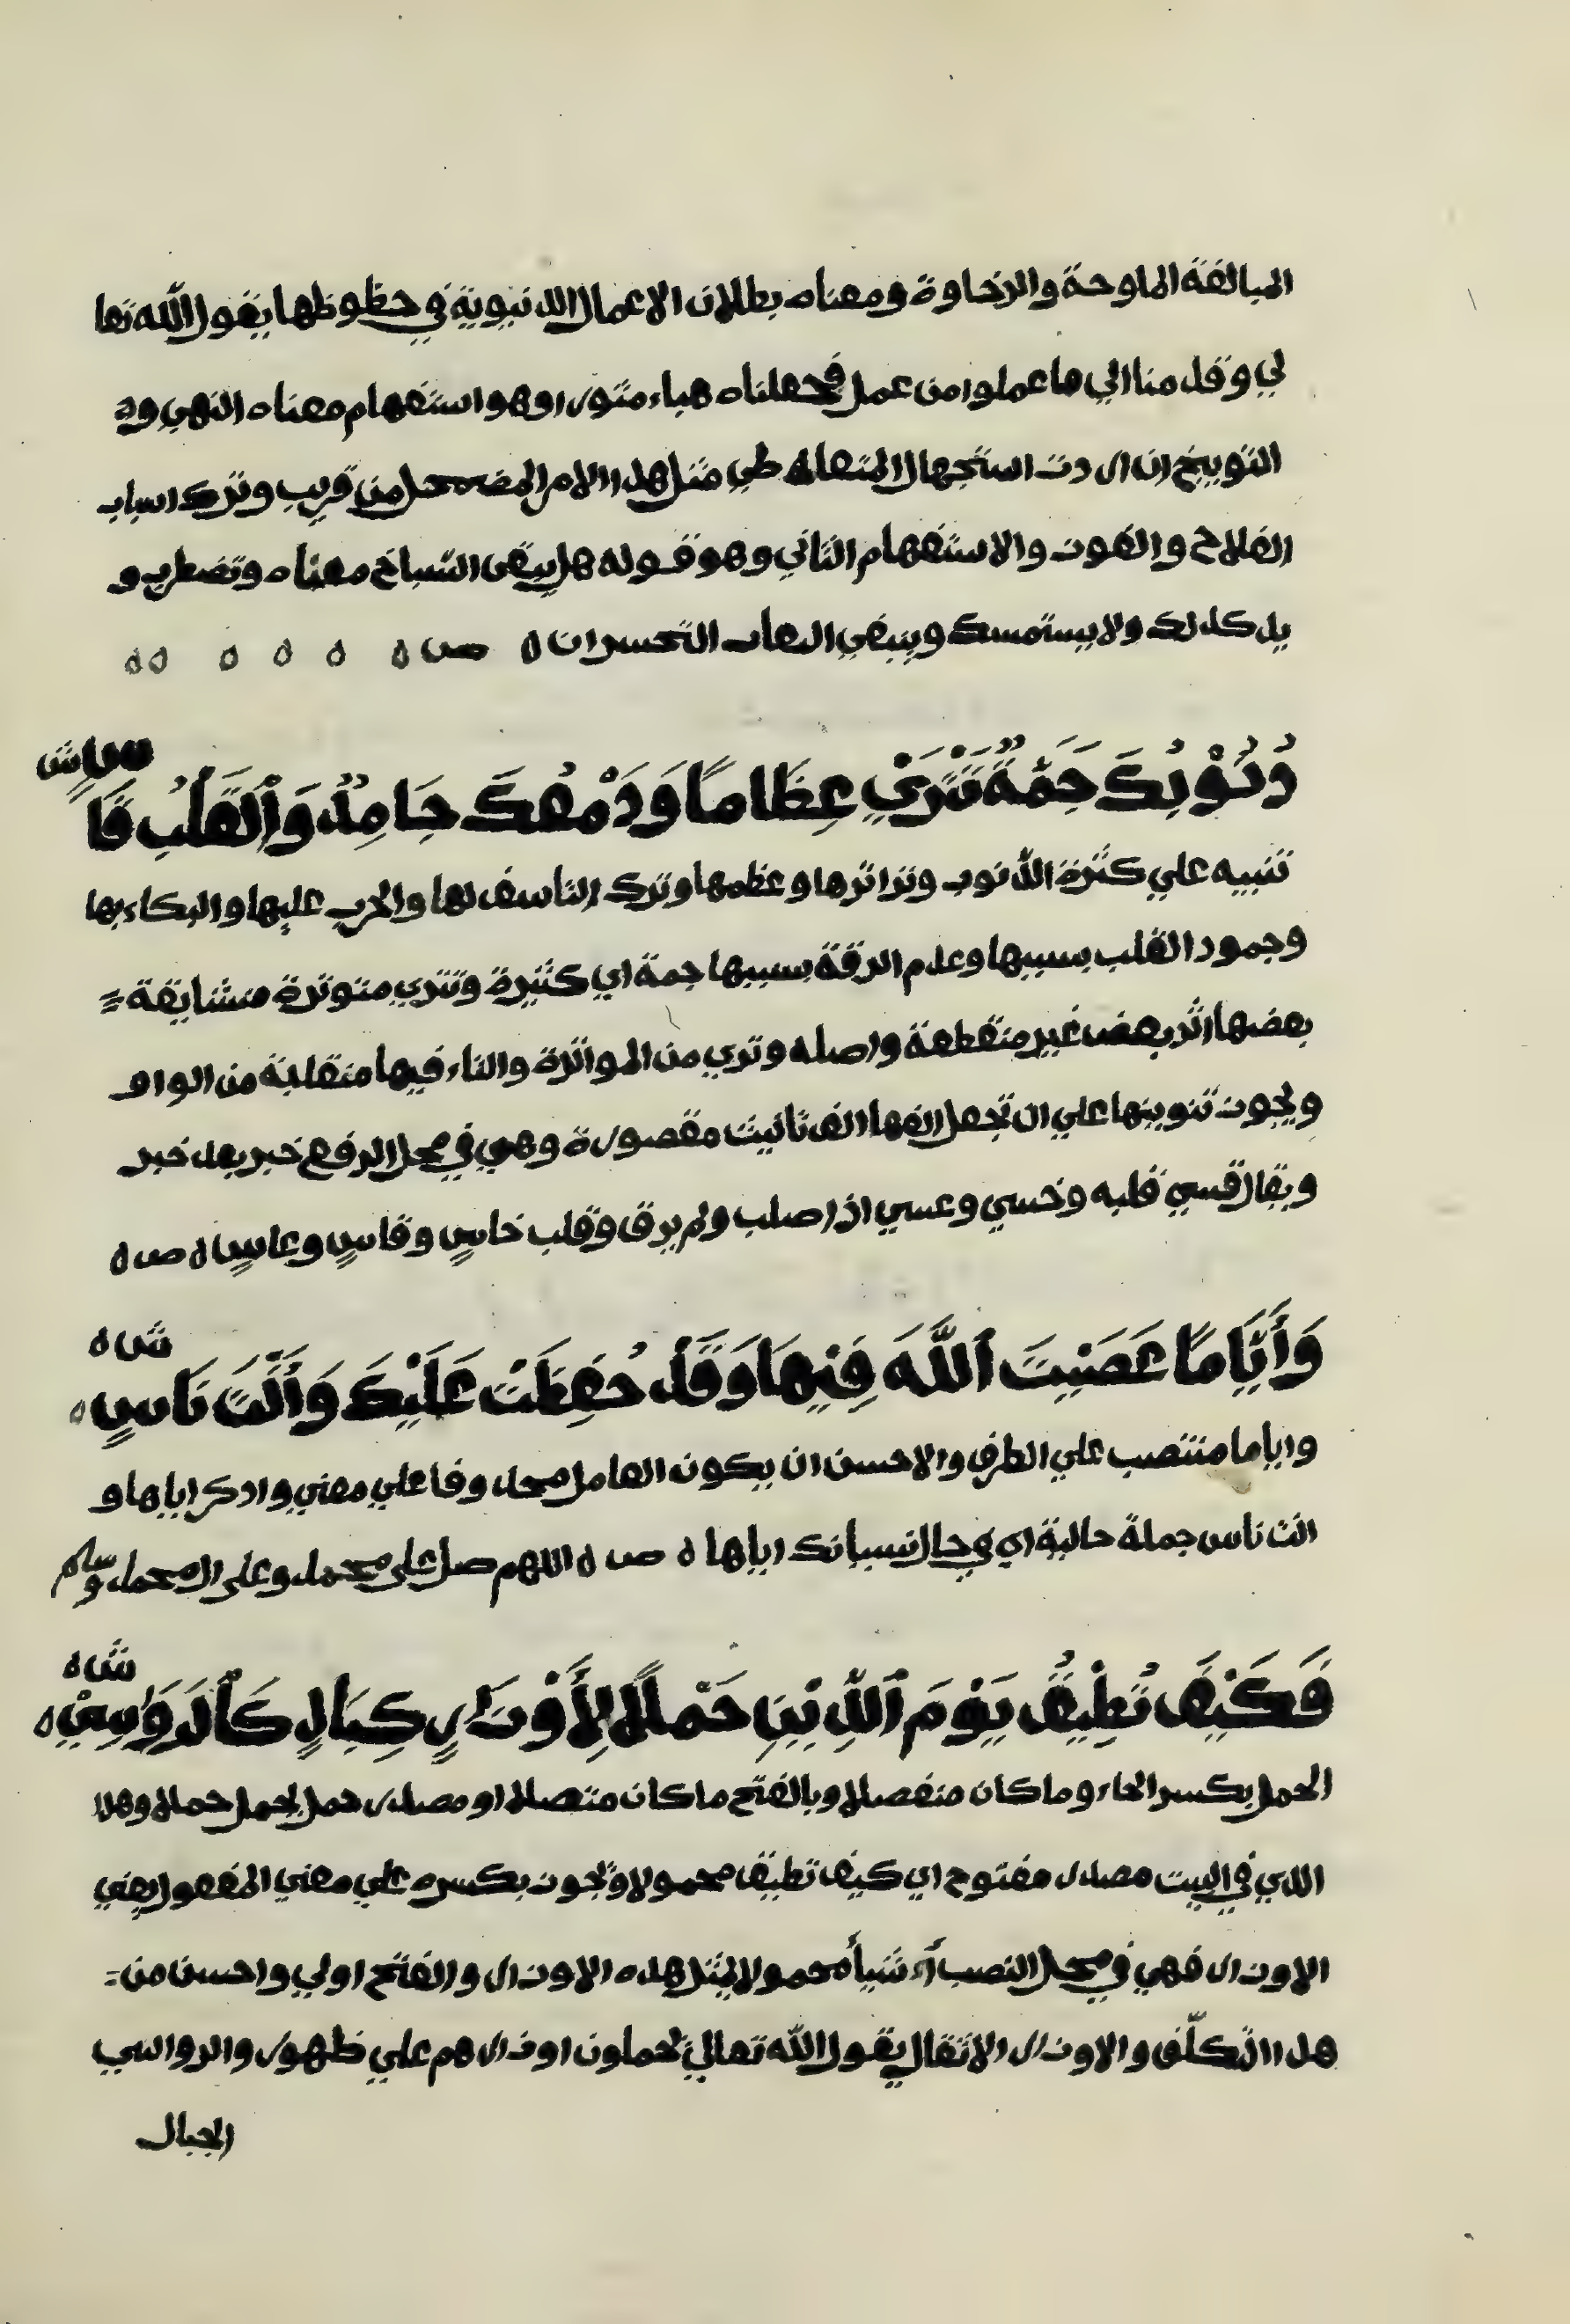 المبالغة الماوحة والرخاوة ومعناه بطلان الاعمال الدنيوية في حظوظها يقول الله تعا
لي وقدمنا الي ما عملوا من عمل فجعلناه هباء منثورا وهو استفهام معناه النهي وه
التوبيخ ان اردت استجهال المتعاه طي مثل هذا الامر المضمحل من قريب وترك اسباب
الفلاح والفوز والاستفهام الثاني وهو قوله هل يبقى السباخ معناه وتضطرب و
يل كذلك ولا يستمسك وينبغي التحسران ه صه ه ه ه ه ه ه
ش
ذُنُوْبُكَ جَمَّةٌ تَتْرَيْ عِظَامًا وَدَمْعُكَ جَامِدٌ وَالْقَلْبُ قَاسِ
تنبيه علي كثرة الذنوب وتراترها وعظمها وترك التاسف لها والحرب عليها والبكاء بها
وجمود القلب بسببها وعدم الرقة بسببها جمة اي كثيرة وتتري متوترة متشابقة
بعضها اثر بعض غير منقطعة واصله وتري من المواترة والتاء فيها منقلبة من الواو
ويجوز تنوينها علي ان تجعل الفها الف تانيث مقصورة وهي في محل الرفع خبر بعد خبر
ويقال قسي قلبه وخسي وعسي اذا صلب ولم يرق وقلب خاسٍ وقاسٍ وعاسٍ ه صه ه
ش ه
وَأَيَّامًا عَصَيْتَ اللَّهَ فِيْهَا وَقَدْ حُفِظَتْ عَلَيْكَ وَأَنْتَ نَاسٍ ه
واياما منتصب علي الظرف والاحسن ان يكون العامل محذوفا علي معني واذكر اياما و
انت ناس جملة حالية اي في حال نسيانك اياها ه صه ه اللهم صل على محمد وعلى ال محمد وسلم
ش ه
فَكَيْفَ تُطِيْقُ يَوْمَ الدِّيْنِ حَمْلًا لِأَوْزَارٍ كِبَارٍ كَالرَّوَاسِيْ ه
الحمل بكسر الحاء وما كان منفصلا وبالفتح ما كان متصلا او مصدر حمل يحمل حملا وهذا
الذي في البيت مصدر مفتوح اي كيف تطيق محمولا ويجوز بكسره علي معني المفعول يعني
الاوزار فهي في محل النصب اي شيأ محمولا لمثل هذه الاوزار والفتح اولي واحسن من
هذا التكلّف والاوزار الاثقال يقول الله تعالي يحملون اوزارهم علي ظهور والرواسي
الجبال